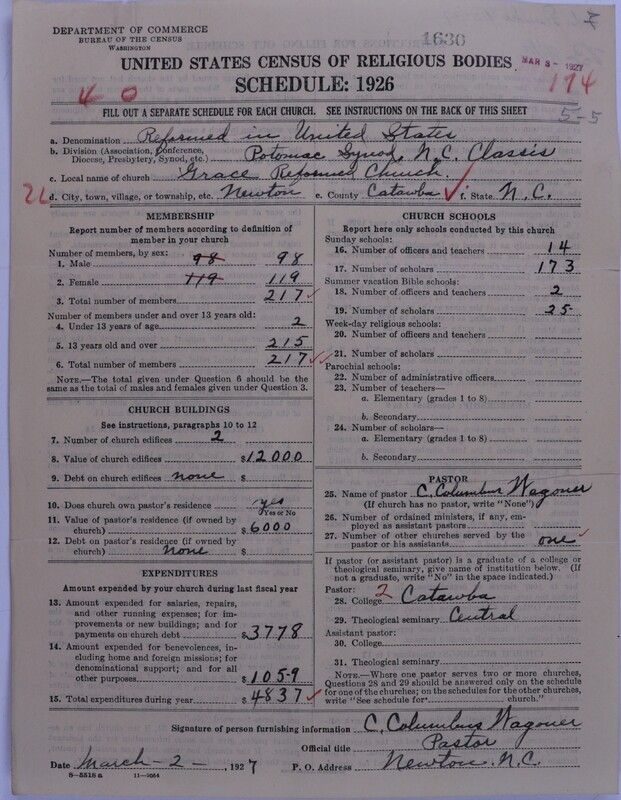 DEPARTMENT OF COMMERCE
BUREAU OF THE CENSUS
WASHINGTON
1630
MAR 3 - 1927
UNITED STATES CENSUS OF RELIGIOUS BODIES
SCHEDULE: 1926
174
40
FILL OUT A SEPARATE SCHEDULE FOR EACH CHURCH. SEE INSTRUCTIONS ON THE BACK OF THIS SHEET
5-5
a. Denomination Reformed in United States
b. Division (Association, Conference, Diocese, Presbytery, Synod, etc.) Potomac Synod, N.C. Classis
c. Local name of church Grace Reformed Church.
d. City, town, village, or township, etc. Newton e. County Catawba f. State N.C.
MEMBERSHIP
Report number of members according to definition of
member in your church
Number of members, by sex:
1. Male 98 98
2. Female 119 119
3. Total number of members 217
Number of members under and over 13 years old:
4. Under 13 years of age 2
5. 13 years old and over 215
6. Total number of members 217
NOTE.—The total given under Question 6 should be
same as the total of males and females given under Question 3.
CHURCH BUILDINGS
See instructions, paragraphs 10 to 12
7. Number of church edifices 2
8. Value of church edifices $12000
9. Debt on church edifices none $
10. Does church own pastor's residence yes
Yes or No
11. Value of pastor's residence (if owned by
church) $6000
12. Debt on pastor's residence (if owned by
church) none $
EXPENDITURES
Amount expended by your church during last fiscal year
13. Amount expended for salaries, repairs,
and other running expenses; for im-
provements or new buildings; and for
payments on church debt $3778
14. Amount expended for benevolences, in-
cluding home and foreign missions; for
denominational support; and for all
other purposes $1059
15. Total expenditures during year $4837
CHURCH SCHOOLS
Report here only schools conducted by this church
Sunday schools:
16. Number of officers and teachers 14
17. Number of scholars 173
Summer vacation Bible schools:
18. Number of officers and teachers 2
19. Number of scholars 25
Week-day religious schools:
20. Number of officers and teachers
21. Number of scholars
Parochial schools:
22. Number of administrative officers
23. Number of teachers—
a. Elementary (grades 1 to 8)
b. Secondary
24. Number of scholars—
a. Elementary (grades 1 to 8)
b. Secondary
PASTOR
25. Name of pastor C. Columbus Wagoner
(If church has no pastor, write "None")
26. Number of ordained ministers, if any, em-
ployed as assistant pastors
27. Number of other churches served by the
pastor or his assistants one
If pastor (or assistant pastor) is a graduate of a college or
theological seminary, give name of institution below. (If
not a graduate, write "No" in the space indicated.)
Pastor: 2
28. College Catawba
29. Theological seminary Central
Assistant pastor:
30. College
31. Theological seminary
NOTE.—Where one pastor serves two or more churches,
Questions 28 and 29 should be answered only on the schedule
for one of the churches; on the schedules for the other churches,
write "See schedule for church."
Signature of person furnishing information C. Columbus Wagoner
Official title Pastor
Date March-2-, 1927 P. O. Address Newton, N.C.
8—5518 a 11—9064